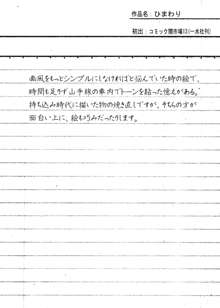 作品名：ひまわり
初出：コミック闇市場13(一水社刊)
画風をもっとシンプルにしなければと悩んでいた時の絵で、
時間も足りず山手線の車内でトーンを貼った憶えがある。
持ち込み時代に描いた物の焼き直しですが、そちらの方が
面白い上に、絵も巧みだったりします。